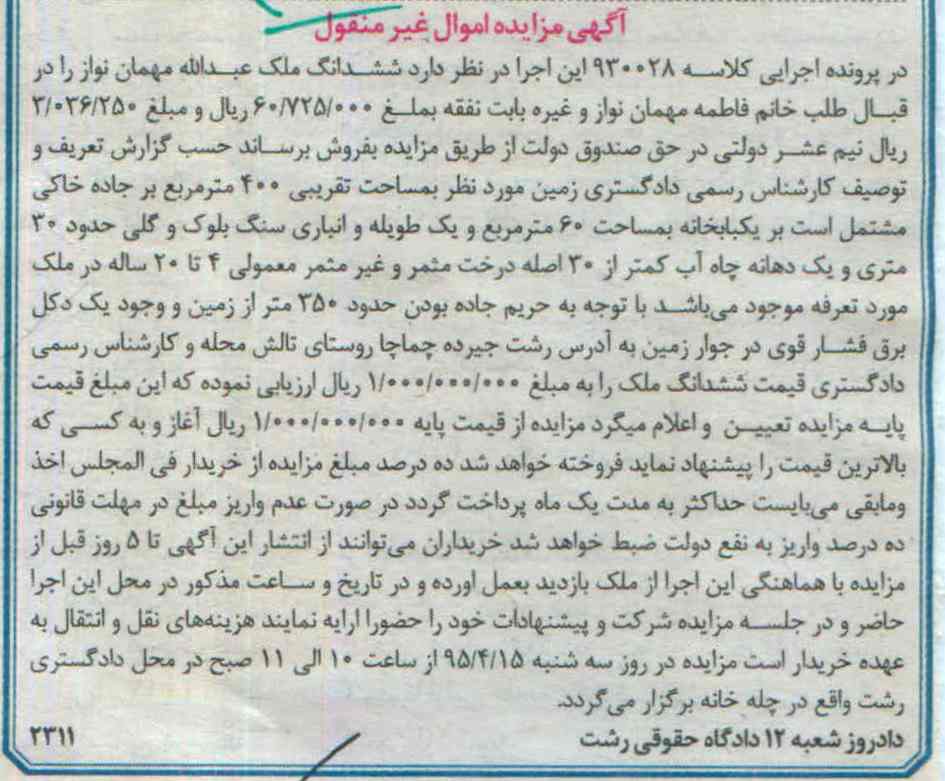 آگهی مزایده اموال غیر منقول
در پرونده اجرایی کلاسه ۹۳۰۰۲۸ این اجرا در نظر دارد ششدانگ ملک عبدالله مهمان نواز را در
قبال طلب خانم فاطمه مهمان نواز و غیره بابت نفقه بملغ ۶۰/۷۲۵/۰۰۰ ریال و مبلغ ۳/۰۳۶/۲۵۰
ریال نیم عشر دولتی در حق صندوق دولت از طریق مزایده بفروش برساند حسب گزارش تعریف و
توصیف کارشناس رسمی دادگستری زمین مورد نظر بمساحت تقریبی ۴۰۰ مترمربع بر جاده خاکی
مشتمل است بر یکبابخانه بمساحت ۶۰ مترمربع و یک طویله و انباری سنگ بلوک و گلی حدود ۳۰
متری و یک دهانه چاه آب کمتر از ۳۰ اصله درخت مثمر و غیر مثمر معمولی ۴ تا ۲۰ ساله در ملک
مورد تعرفه موجود می‌باشد با توجه به حریم جاده بودن حدود ۳۵۰ متر از زمین و وجود یک دکل
برق فشار قوی در جوار زمین به آدرس رشت جیرده چماچا روستای تالش محله و کارشناس رسمی
دادگستری قیمت ششدانگ ملک را به مبلغ ۱/۰۰۰/۰۰۰/۰۰۰ ریال ارزیابی نموده که این مبلغ قیمت
پایه مزایده تعیین و اعلام میگرد مزایده از قیمت پایه ۱/۰۰۰/۰۰۰/۰۰۰ ریال آغاز و به کسی که
بالاترین قیمت را پیشنهاد نماید فروخته خواهد شد ده درصد مبلغ مزایده از خریدار فی المجلس اخذ
ومابقی می‌بایست حداکثر به مدت یک ماه پرداخت گردد در صورت عدم واریز مبلغ در مهلت قانونی
ده درصد واریز به نفع دولت ضبط خواهد شد خریداران می‌توانند از انتشار این آگهی تا ۵ روز قبل از
مزایده با هماهنگی این اجرا از ملک بازدید بعمل اورده و در تاریخ و ساعت مذکور در محل این اجرا
حاضر و در جلسه مزایده شرکت و پیشنهادات خود را حضورا ارایه نمایند هزینه‌های نقل و انتقال به
عهده خریدار است مزایده در روز سه شنبه ۹۵/۴/۱۵ از ساعت ۱۰ الی ۱۱ صبح در محل دادگستری
رشت واقع در چله خانه برگزار می‌گردد.
دادروز شعبه ۱۲ دادگاه حقوقی رشت ۲۳۱۱